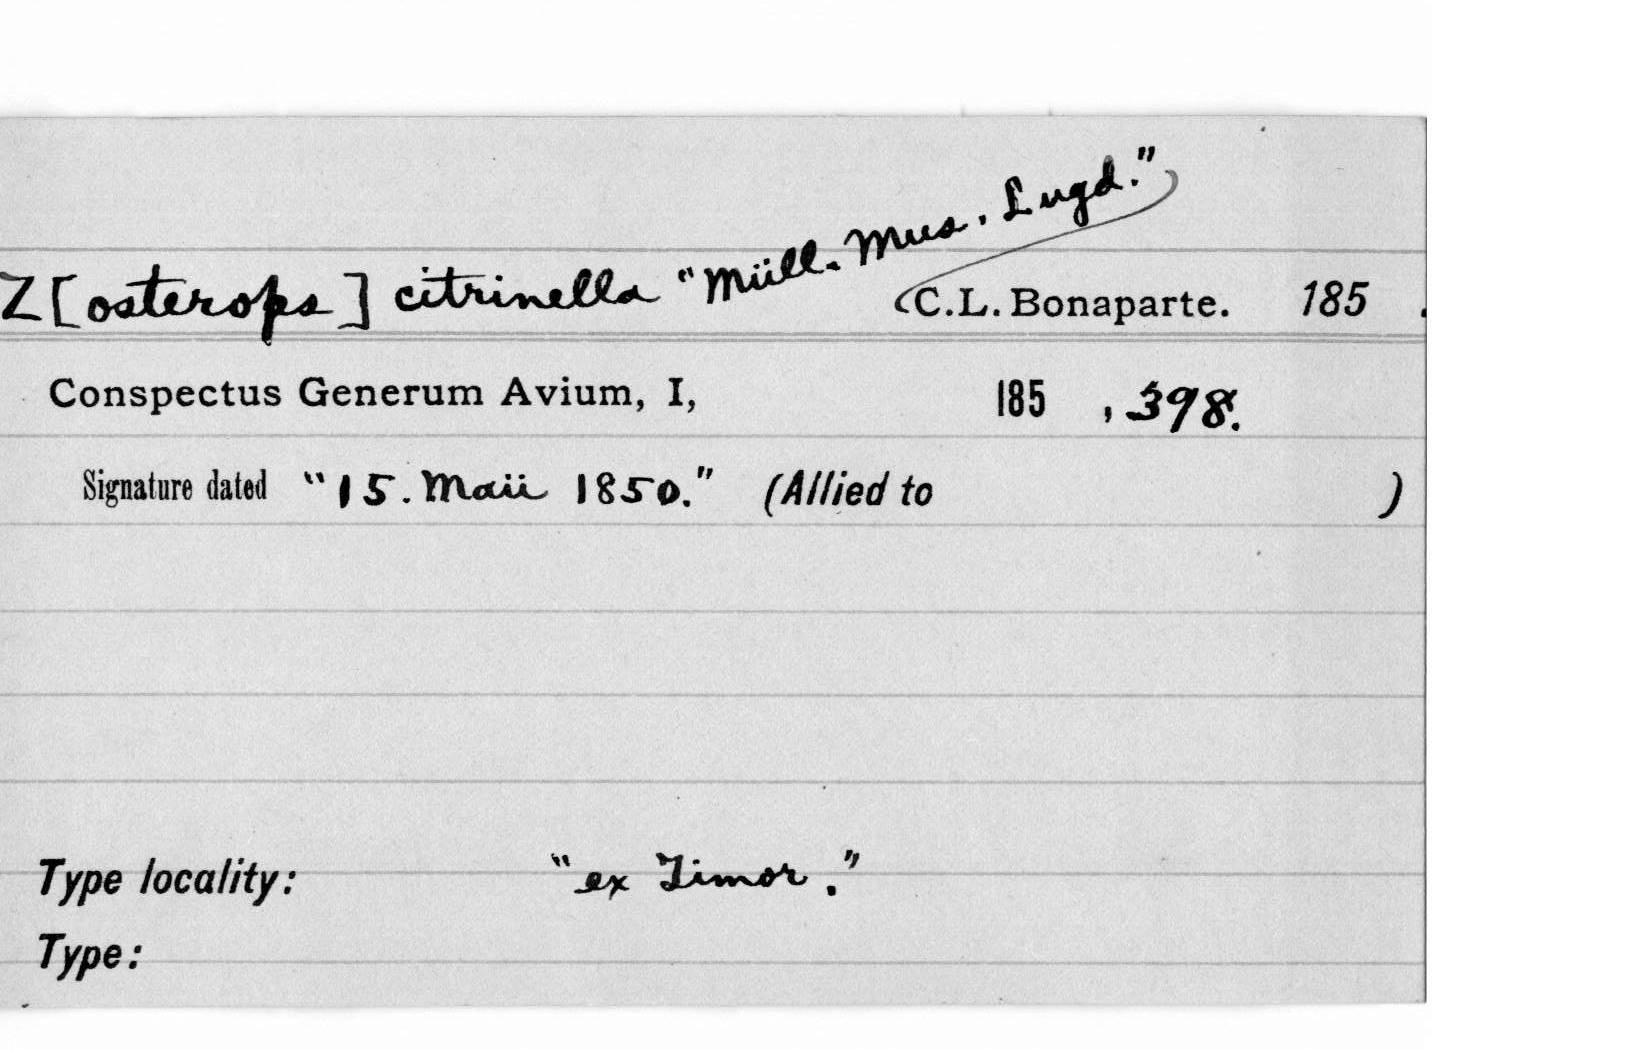 Z[osterops] citrinella "Müll. Mus. Lugd."
(C.L. Bonaparte. 185 .
Conspectus Generum Avium, I, 185 , 398.
Signature dated "15. Maii 1850." (Allied to )
Type locality: "ex Timor."
Type: